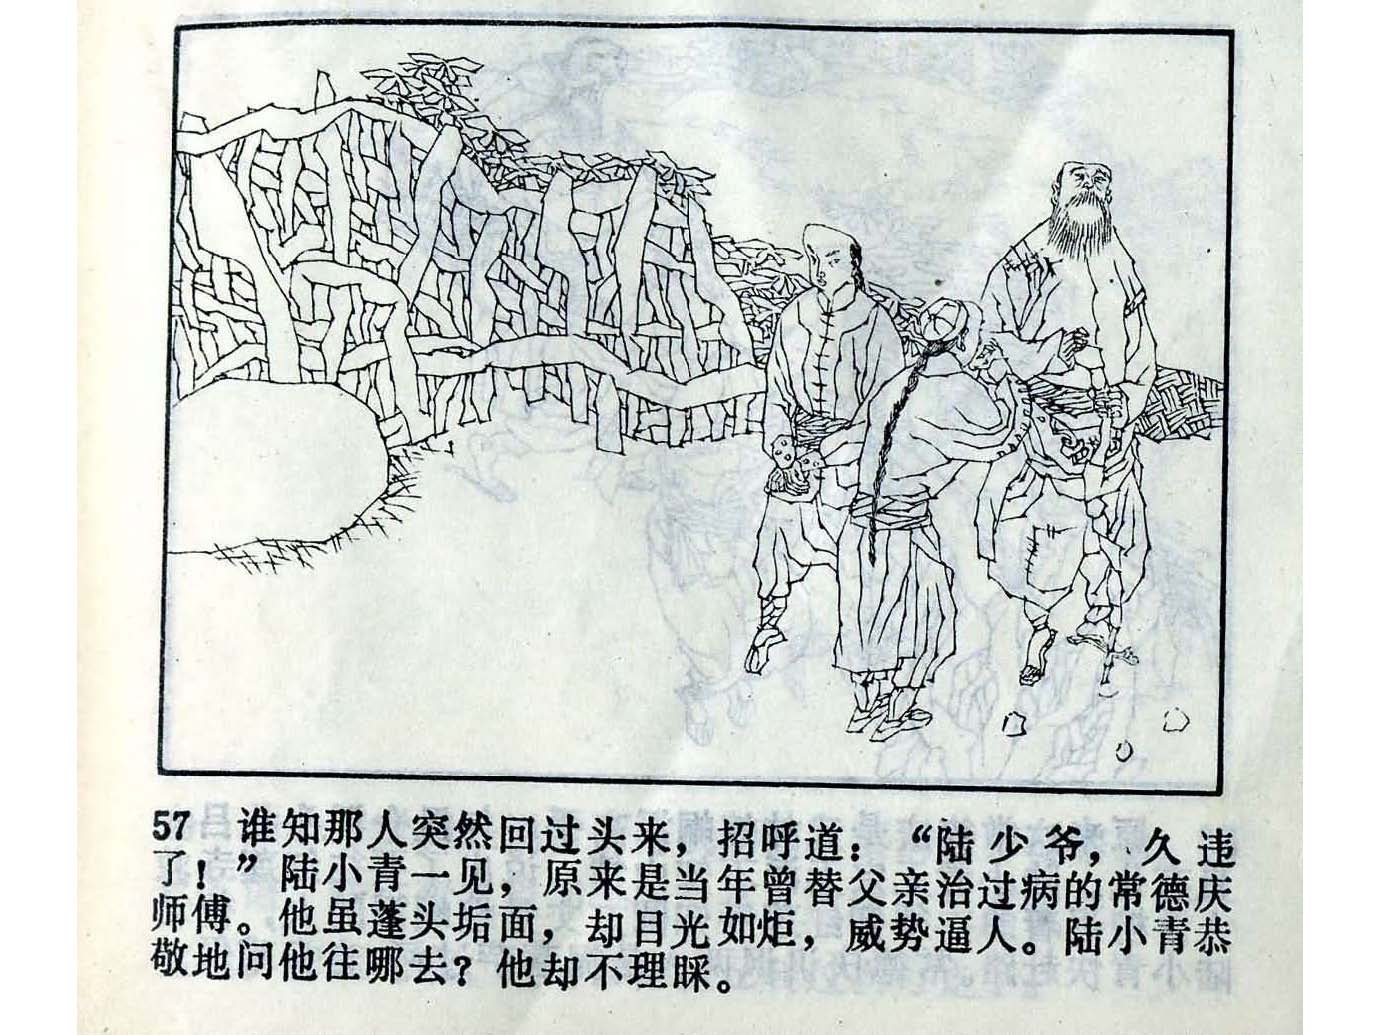 57 谁知那人突然回过头来，招呼道：“陆少爷，久违
了！”陆小青一见，原来是当年曾替父亲治过病的常德庆
师傅。他虽蓬头垢面，却目光如炬，威势逼人。陆小青恭
敬地问他往哪去？他却不理睬。